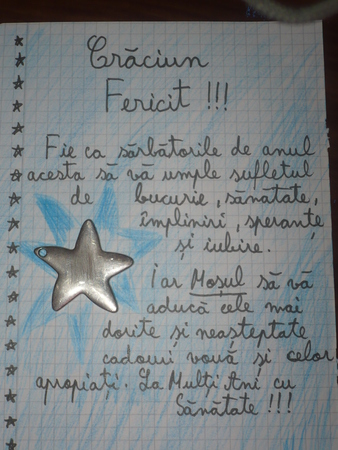 Crăciun
Fericit !!!
Fie ca sărbătorile de anul
acesta să vă umple sufletul
de bucurie, sănătate,
împliniri, speranțe
și iubire.
Iar Moșul să vă
aducă cele mai
dorite și neașteptate
cadouri vouă și celor
apropiați. La Mulți Ani cu
Sănătate !!!